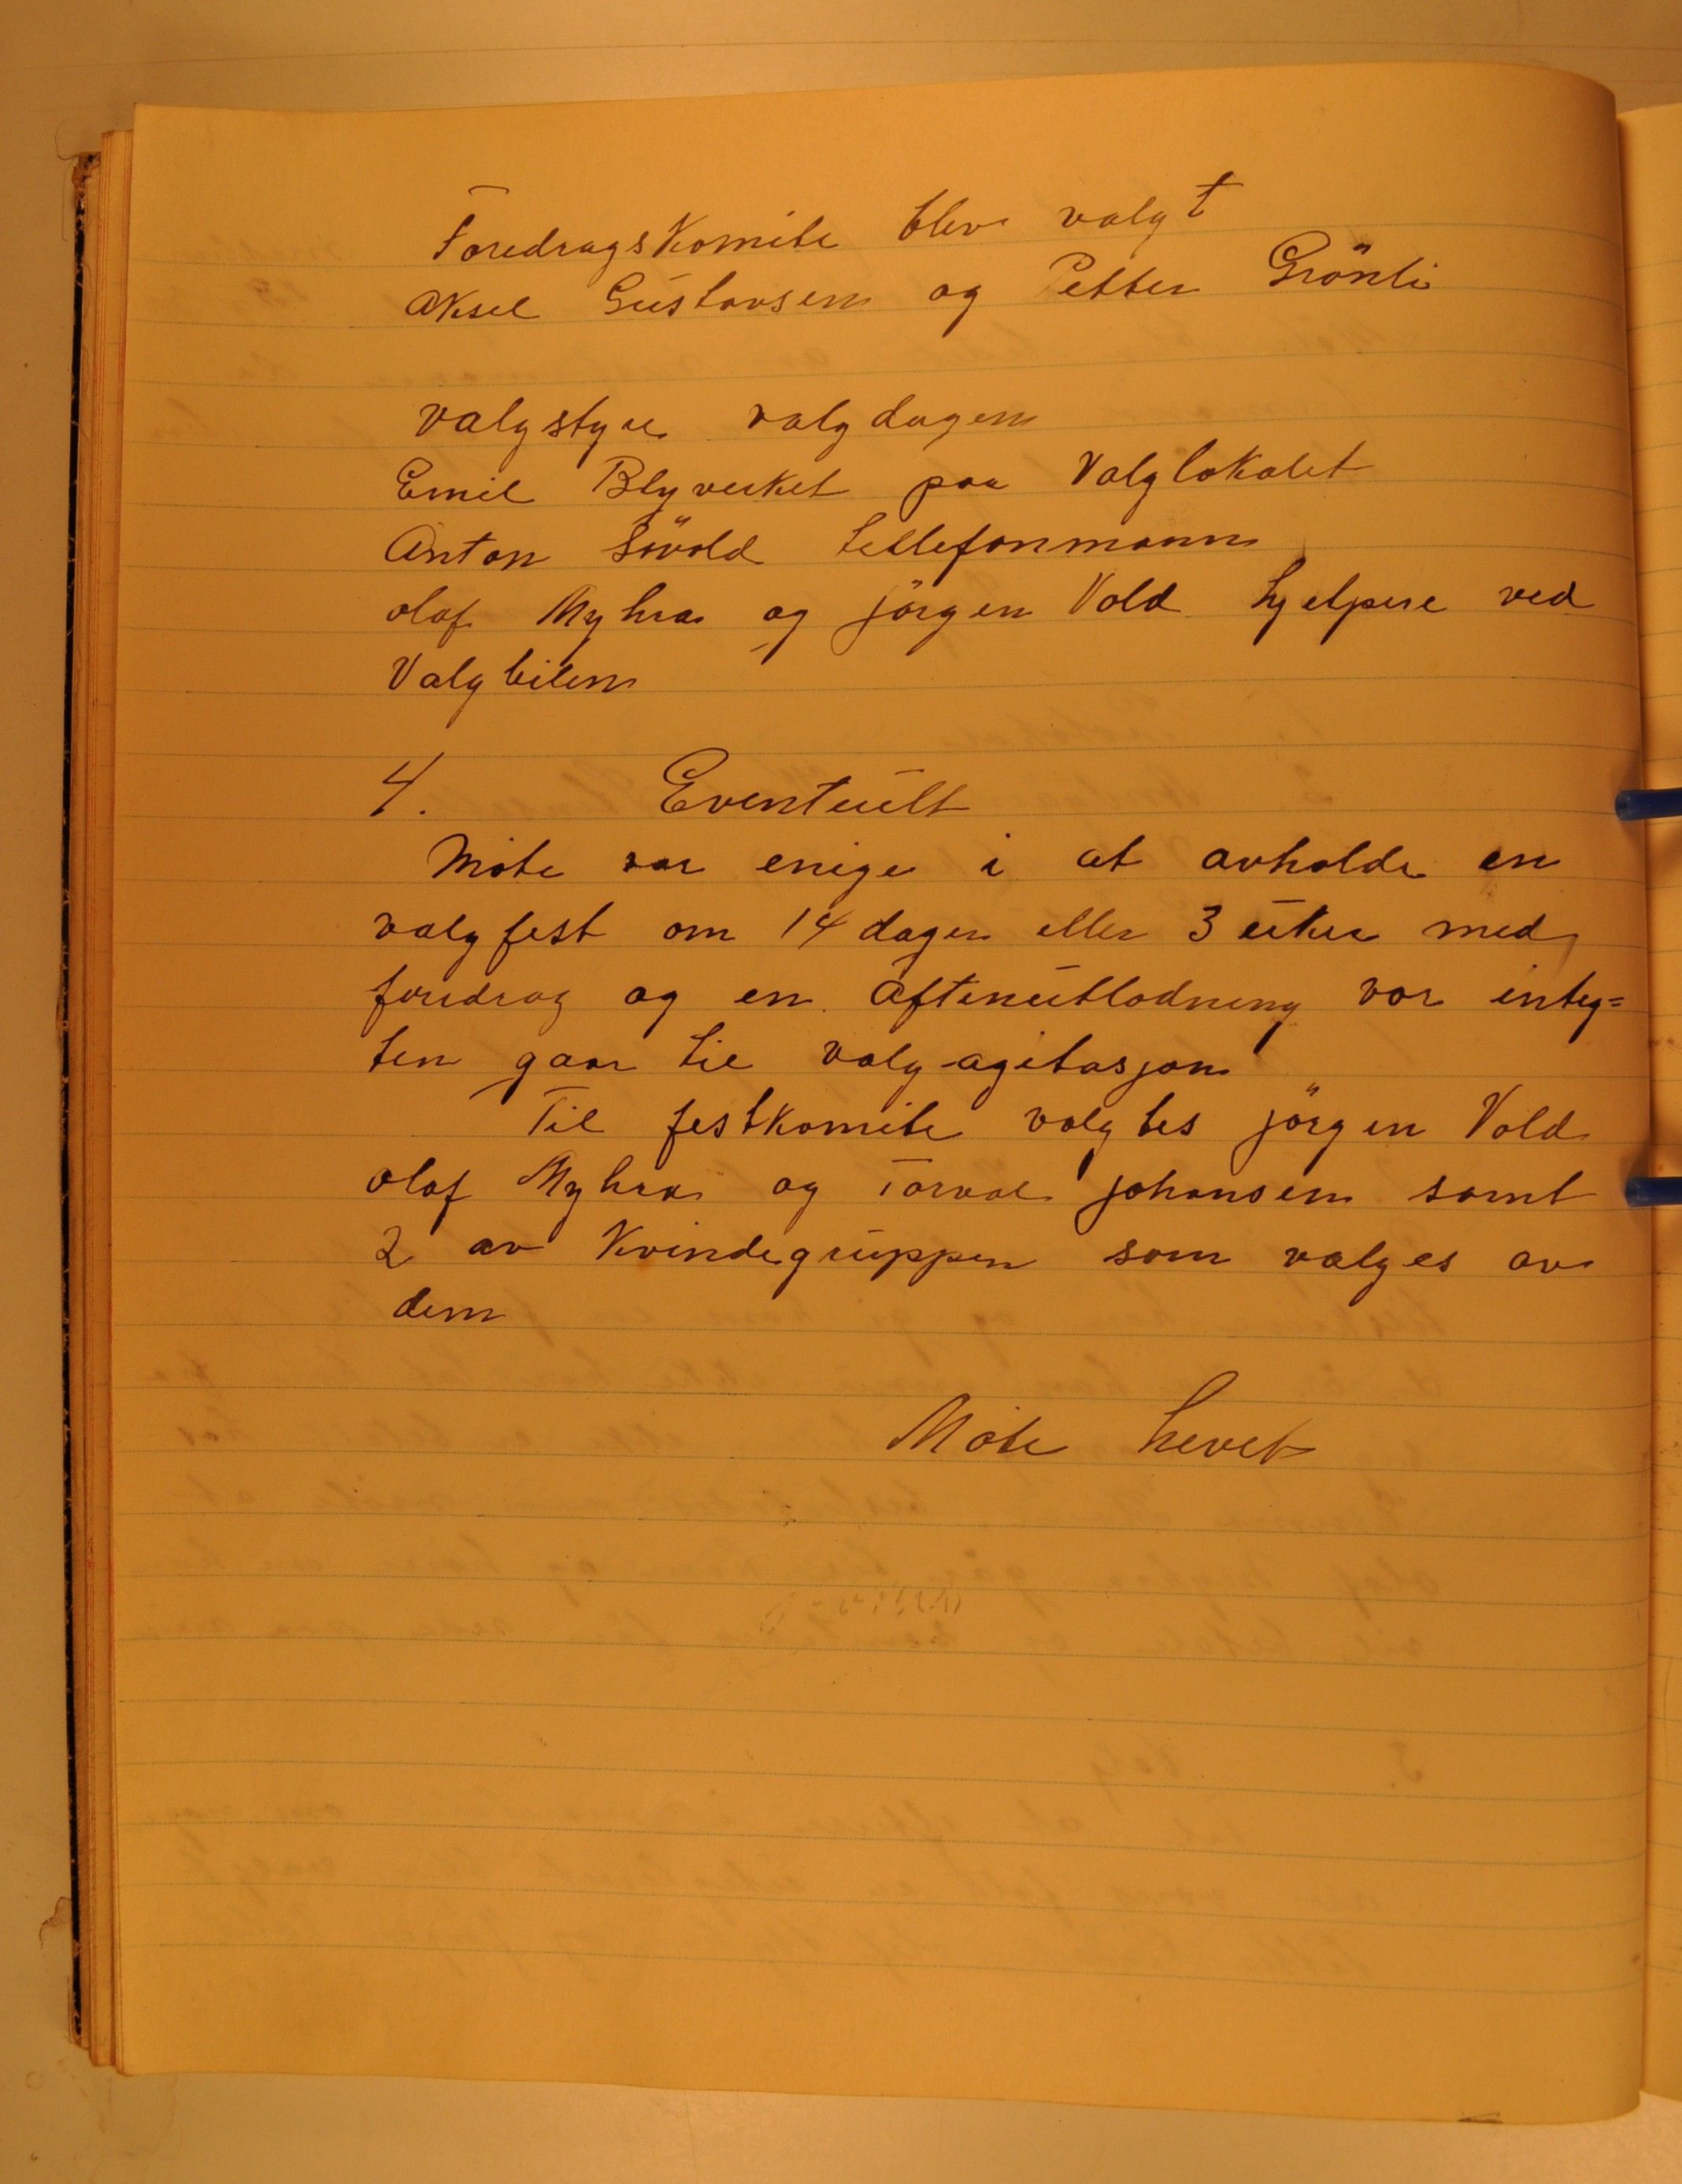 Foredragskomite blev valgt
Aksel Gustavsen og Petter Grönli
valgstyre valgdagen
Emil Blyverket paa Valglokalet
Anton Sövold tellefonmann
olaf Myhra og jörgen Vold hjelpere ved
Valgbilen
4. Eventuelt
Möte var enige i at avholde en
valgfest om 14 dager eller 3 uker med
foredrag og en Aftenutlodning vor integ=
ten gaar til valg-agitasjon
Til festkomite valgtes jörgen Vold
olaf Myhra og Torval johansen samt
2 av Kvindegruppen som valges av
dem
Möte hevet